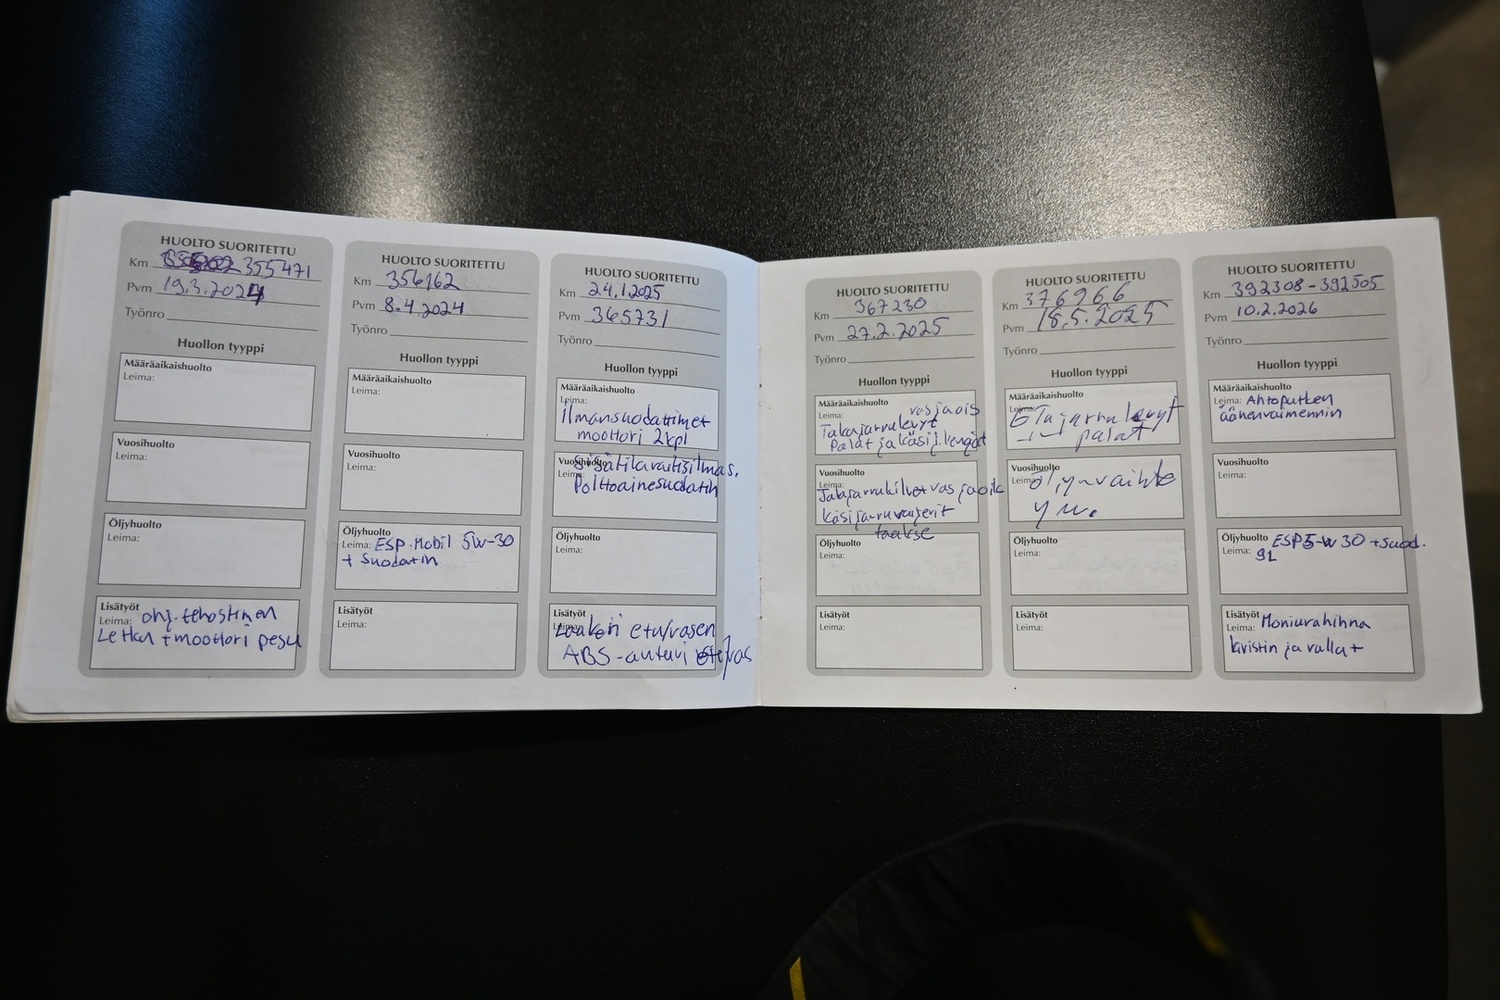 HUOLTO SUORITETTU
Km 355471
Pvm 19.3.2024
Työnro
Huollon tyyppi
Määräaikaishuolto
Leima:
Vuosihuolto
Leima:
Öljyhuolto
Leima:
Lisätyöt
Leima: ohj.tehostimen
Letkun + moottori pesu
HUOLTO SUORITETTU
Km 356162
Pvm 8.4.2024
Työnro
Huollon tyyppi
Määräaikaishuolto
Leima:
Vuosihuolto
Leima:
Öljyhuolto
Leima: ESP.Mobil 5W-30
+ Suodatin
Lisätyöt
Leima:
HUOLTO SUORITETTU
Km 24.1.2025
Pvm 365731
Työnro
Huollon tyyppi
Määräaikaishuolto
Leima:
Ilmansuodattimet
moottori 2kpl
Vuosihuolto
Polttoainesuodatin
Öljyhuolto
Leima:
Lisätyöt
Leima:
Laakeri etu/vasen
ABS-anturi /vas
HUOLTO SUORITETTU
Km 367230
Pvm 27.2.2025
Työnro
Huollon tyyppi
Määräaikaishuolto
Leima: vas ja oik
Takajarrulevyt
Palat ja käsij.kengät
Vuosihuolto
Leima:
Takajarrukilvet vas ja oik
käsijarruvaijerit
taakse
Öljyhuolto
Leima:
Lisätyöt
Leima:
HUOLTO SUORITETTU
Km 376966
Pvm 18.5.2025
Työnro
Huollon tyyppi
Määräaikaishuolto
Leima:
Etujarrulevyt
-ıı- palat
Vuosihuolto
Öljynvaihto
ym.
Öljyhuolto
Leima:
Lisätyöt
Leima:
HUOLTO SUORITETTU
Km 392308-392505
Pvm 10.2.2026
Työnro
Huollon tyyppi
Määräaikaishuolto
Leima: Ahtoputken
äänenvaimennin
Vuosihuolto
Leima:
Öljyhuolto ESP 5-W30 +Suod.
Leima: 9L
Lisätyöt
Leima: Moniurahihna
kiristin ja rullat